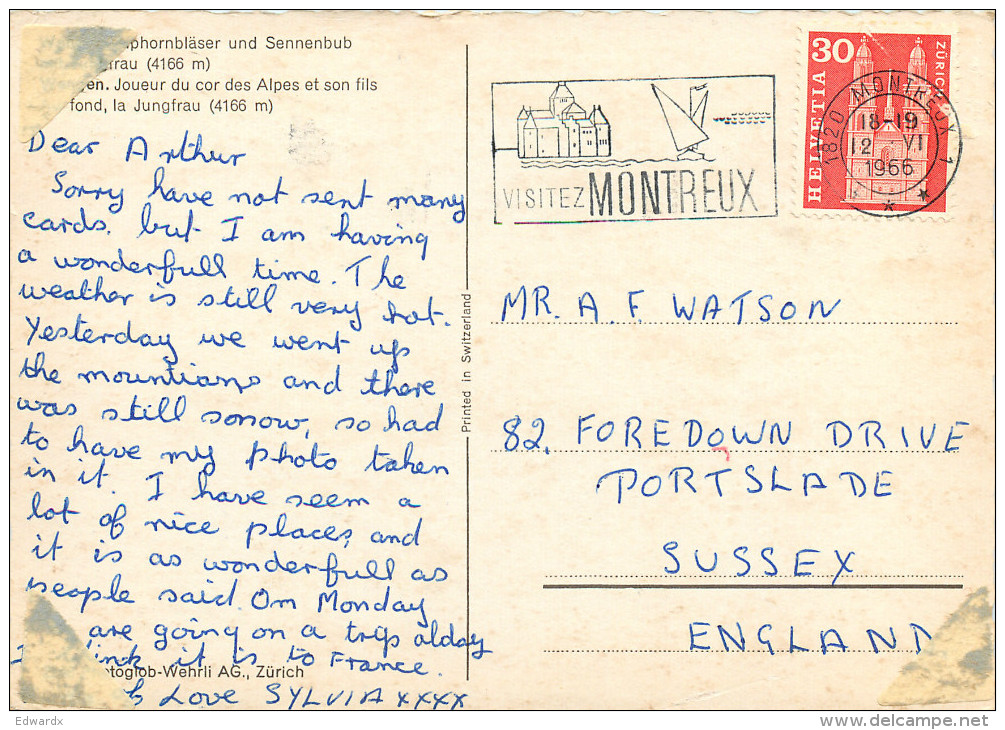 phornbläser und Sennenbub
frau (4166 m)
en. Joueur du cor des Alpes et son fils
fond, la Jungfrau (4166 m)
Dear Arthur
Sorry have not sent many
cards. but I am having
a wonderfull time. The
weather is still very hot.
Yesterday we went up
the mountians and there
was still sonow, so had
to have my photo taken
in it. I have seem a
lot of nice places, and
it is as wonderfull as
people said. On Monday
are going on a trip alday
I think it is to France.
toglob-Wehrli AG., Zürich
Love SYLVIA xxxx
Printed in Switzerland
VISITEZ MONTREUX
30
HELVETIA
ZÜRICH
1820 MONTREUX 1
18-19
12 VI
1966
MR. A. F. WATSON
82. FOREDOWN DRIVE
PORTSLADE
SUSSEX
ENGLAND
Edwardx
http://www.delcampe.net